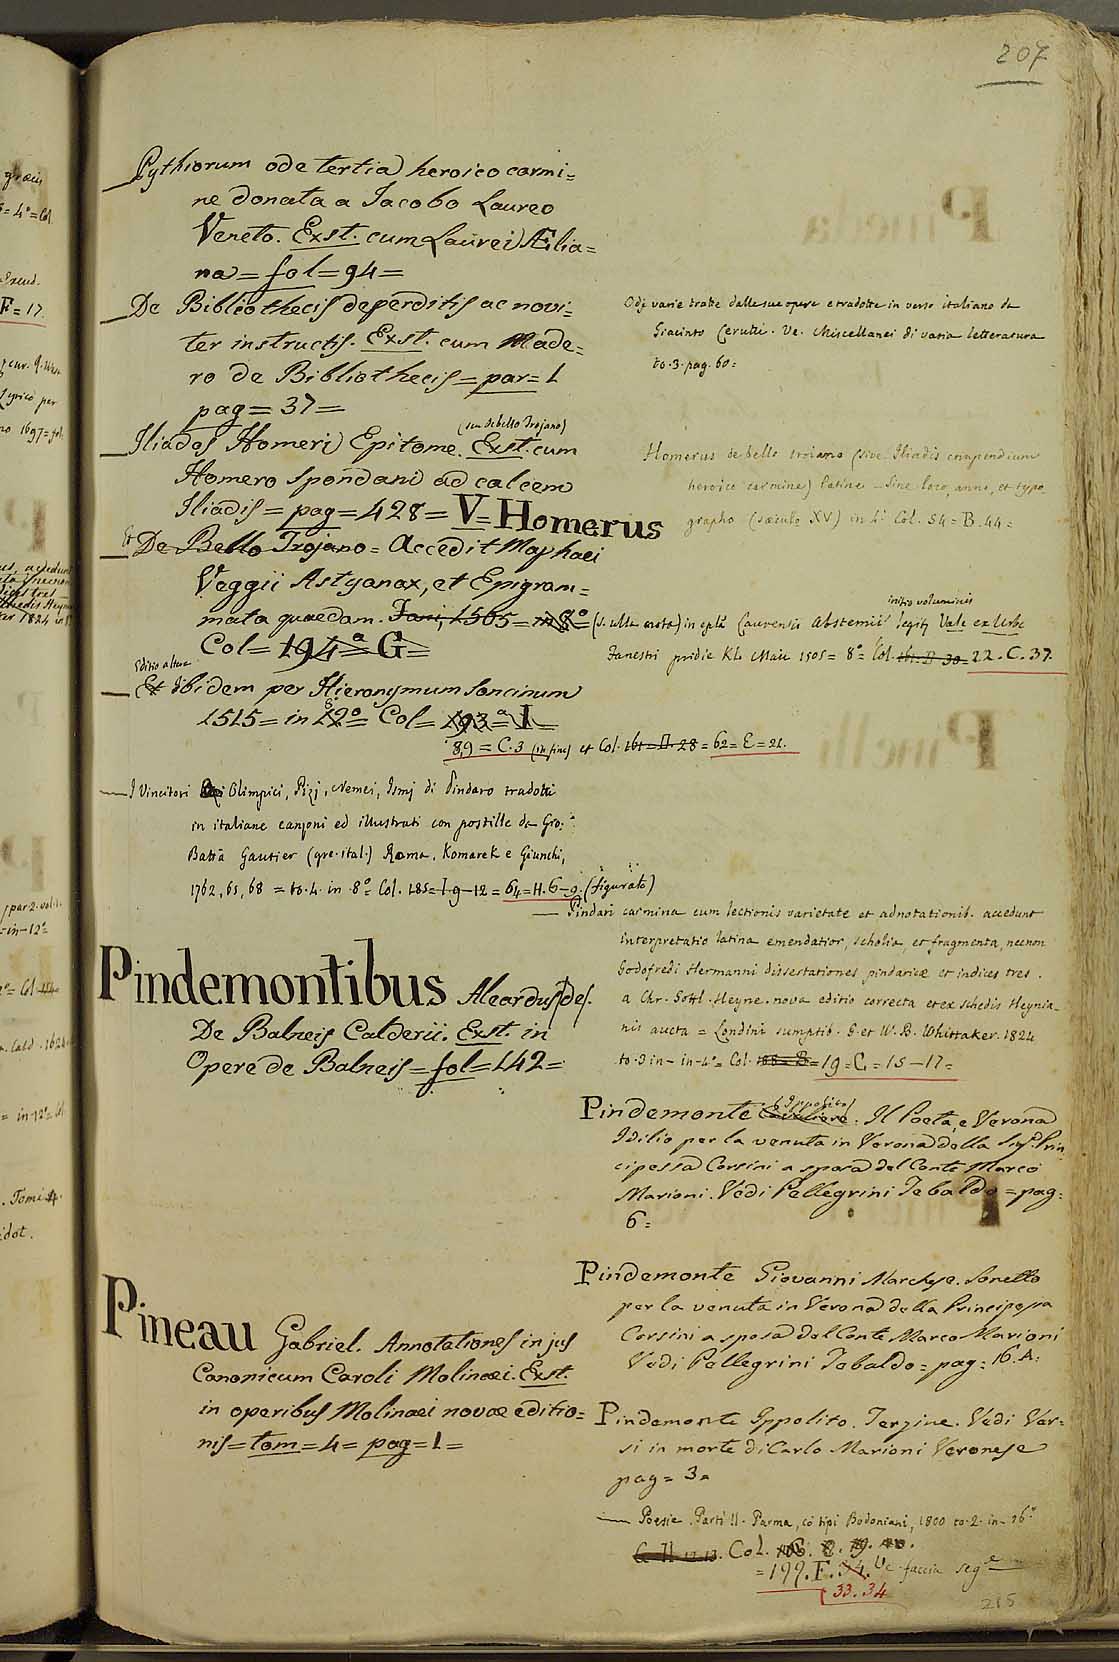 207
Pythiorum ode tertia heroico carmi=
ne donata a Jacobo Laureo
Veneto. Exst. cum Laurei Ælia=
na = fol = 94 =
De Bibliothecis deperditis ac novi=
ter instructis. Exst. cum Made=
ro de Bibliothecis = par = 1
pag = 37 =
(seu de bello Trojano)
Iliados Homeri Epitome. Exst. cum
Homero Spondani ad calcem
Iliadis = pag = 428 = V = Homerus
Et De Bello Trojano = Accedit Maphaei
Veggii Astyanax, et Epigram=
mata quaedam. Fani, 1505 = in 8º =
Col = 194 = a G =
Editio altera
Et ibidem per Hieronymum Soncinum
1515 = in 12º = Col = 193 = a I =
89 = C. 3 (in fine) et Col. 161 = D. 28 = 62 = E = 21.
I Vincitori Olimpici, Pizj, Nemei, Ismj di Pindaro tradotti
in italiane canzoni ed illustrati con postille da Gio:
Batta Gautier (gre. ital.) Roma, Komarek e Giunchi,
1762, 65, 68 = to. 4. in 8º = Col. 185 = I. 9 - 12 = 64 = H. 6 - 9. (figurato)
Pindemontibus Aleardus de.
De Balneis Calderii. Exst. in
Opere de Balneis = fol = 142 =
Pineau Gabriel. Annotationes in jus
Canonicum Caroli Molinaei. Exst.
in operibus Molinaei novae editio=
nis = tom = 4 = pag = 1 =
Odi varie tratte dalle sue opere e tradotte in verso italiano da
Giacinto Cerutti. Ve. Miscellanei di varia letteratura
to. 3. pag. 60 =
Homerus de bello troiano (sive Iliadis compendium
heroico carmine) latine - Sine loco, anno, et typo
grapho (saeculo XV) in 4º Col. 54 = B. 44 =
initio voluminis
(s. ulla nota) in Laurentii Abstemii legitur Vale ex Urbe
Fanestri pridie Kl. Maii 1505 = 8º = Col. 161. D 30 = 22. C. 37.
Pindari carmina cum lectionis varietate et adnotationib. accedunt
interpretatio latina emendatior, scholia, et fragmenta, necnon
Godofredi Hermanni dissertationes pindaricae et indices tres.
a Chr. Gottl. Heyne. nova editio correcta et ex schedis Heynia-
nis aucta = Londini sumptib. G. et W. B. Whittaker. 1824
to. 3 in - in - 4º = Col. 88 = B = 19 = C = 15 - 17 =
(Ippolito)
Pindemonte Cavaliere. Il Poeta, e Verona
Idilio per la venuta in Verona della Sig.a Prin
cipessa Corsini a sposa del Conte Marco
Marioni. Vedi Pellegrini Tebaldo = pag:
6 =
Pindemonte Giovanni Marchese. Sonetto
per la venuta in Verona della Principessa
Corsini a sposa del Conte Marco Marioni
Vedi Pellegrini Tebaldo = pag: 16. A:
Pindemonte Ippolito. Terzine. Vedi Ver=
si in morte di Carlo Marioni Veronese
pag = 3 =
Poesie. Parti II. Parma, co' tipi Bodoniani, 1800 to. 2. in - 16º
Col.
= 199. F. 34. Ve. faccia seg.e
33. 34
215